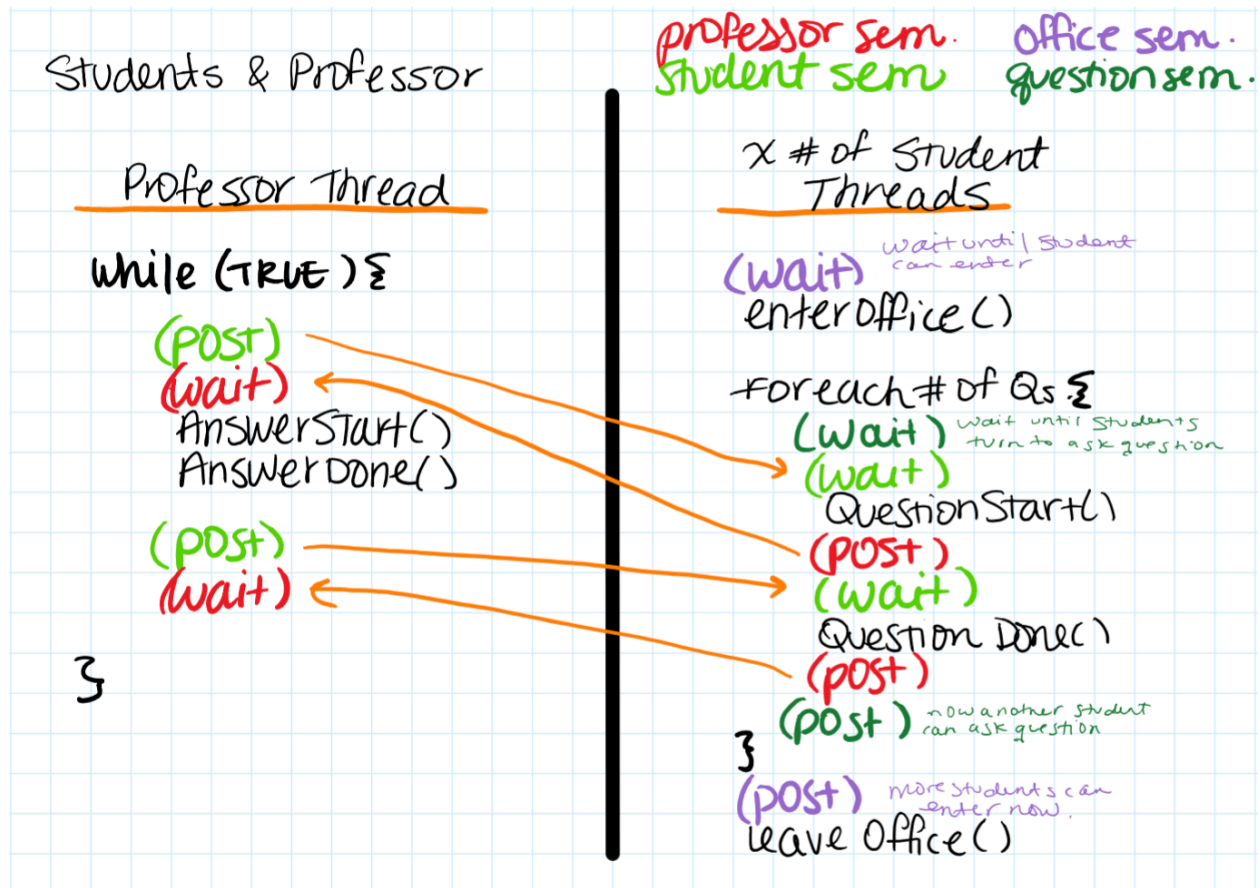 Students & Professor
professor sem.
office sem.
student sem
question sem.
Professor Thread
while (TRUE) {
(post)
(wait)
AnswerStart()
AnswerDone()
(post)
(wait)
}
x # of Student
Threads
(wait) wait until student
can enter
enterOffice()
Foreach # of Qs {
(wait) wait until students
turn to ask question
(wait)
QuestionStart()
(post)
(wait)
Question Done()
(post)
(post) now another student
can ask question
}
(post) more students can
enter now.
Leave Office()